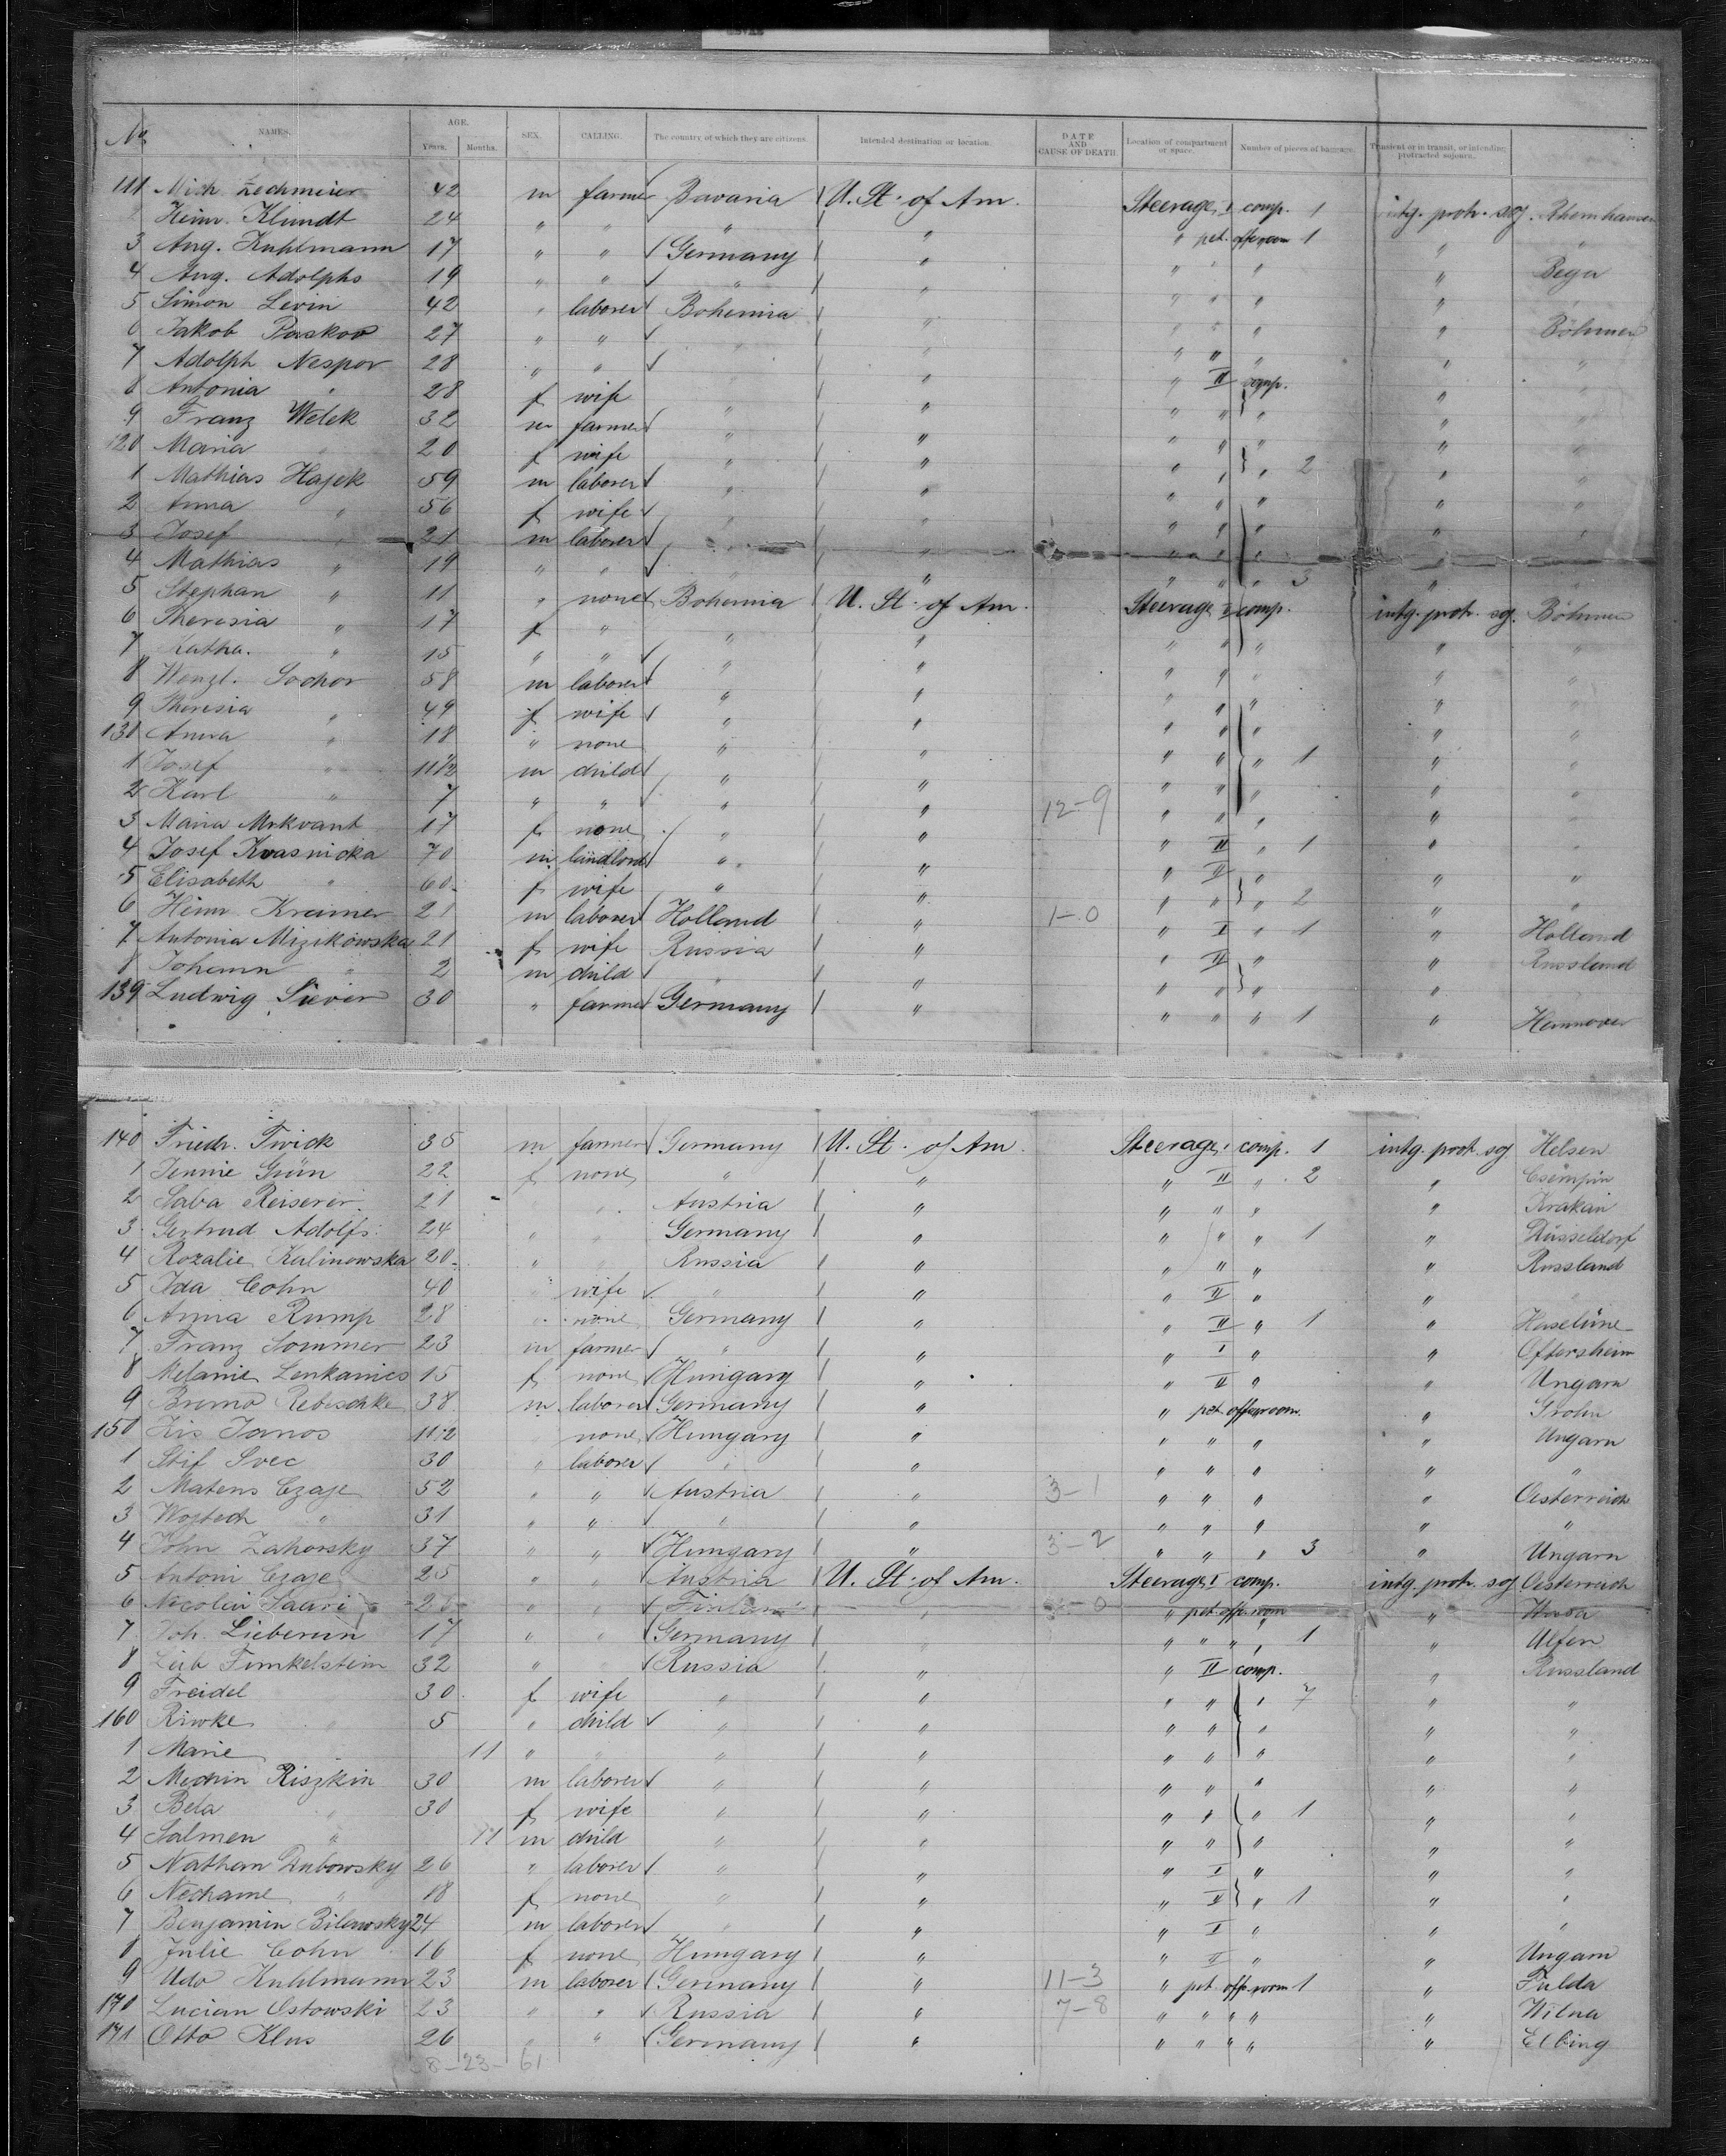 No. NAMES. AGE. Years. Months. SEX. CALLING. The country of which they are citizens. Intended destination or location. DATE AND CAUSE OF DEATH. Location of compartment or space. Number of pieces of baggage. Transient or in transit, or intending protracted sojourn.
111 Mich. Zechmeier 42 m farmer Bavaria U. St. of Am. Steerage I comp. 1 intg. protr. soj.
2 Heinr. Klundt 24 " " " " " pet. offe room 1 "
3 Aug. Kuhlmann 17 " " Germany " " " " Bega
4 Aug. Adolphs 19 " " " " " " " "
5 Simon Levin 42 " laborer Bohemia " " " " " Böhmen
6 Jakob Paskov 27 " " " " " " " "
7 Adolph Nespor 28 " " " " II comp. " "
8 Antonia " 28 f wife " " " " " "
9 Franz Welek 32 m farmer " " " " " "
120 Maria " 20 f wife " " " " 2 " "
1 Mathias Hajek 59 m laborer " " " " " "
2 Anna " 56 f wife " " " " " "
3 Josef " 21 m laborer " " " " " "
4 Mathias " 19 " " " " " " 3 " "
5 Stephan " 11 " none Bohemia U. St. of Am. Steerage I comp. intg. protr. soj. Böhmen
6 Theresia " 17 f " " " " " " "
7 Katha. " 15 " " " " " " " "
8 Wenzl. Sochor 58 m laborer " " " " " "
9 Theresia " 49 f wife " " " " " "
130 Anna " 18 " none " " " " 1 " "
1 Josef " 11 1/2 m child " " " " " "
2 Karl " 7 " " " " 12-9 " " " "
3 Maria Mrkvant 17 f none " " " II " 1 " "
4 Josef Kvasnicka 70 m landlord " " " II " " "
5 Elisabeth " 60 f wife " " " " " 2 " "
6 Heinr. Kramer 21 m laborer Holland " 1-0 " I " 1 " Holland
7 Antonia Mizikowska 21 f wife Russia " " II " " Russland
8 Johann " 2 m child " " " " " "
139 Ludwig Siever 30 " farmer Germany " " " " 1 " Hannover
140 Friedr. Twick 35 m farmer Germany U. St. of Am. Steerage I comp. 1 intg. protr. soj. Helsen
1 Jennie Grün 22 f none " " " II " 2 " Csempin
2 Saba Reiserer 21 " Austria " " " " " Krakau
3 Gertrud Adolfs 24 " " Germany " " " " 1 " Düsseldorf
4 Rozalie Kalinowska 20 " " Russia " " " " " Russland
5 Ida Cohn 40 " wife " " " II " " "
6 Anna Rump 28 " none Germany " " II " 1 " Haselüne
7 Franz Sommer 23 m farmer " " " I " " Oftersheim
8 Melanie Lenkanics 15 f none Hungary " " II " " Ungarn
9 Bruno Rebeschke 38 m laborer Germany " " pet. offe room. " Grohn
150 Kis Janos 11 1/2 none Hungary " " " " " Ungarn
1 Stif Svec 30 " laborer " " " " " " "
2 Matens Czaje 52 " " Austria " 3-1 " " " " Oesterreich
3 Wojtech " 31 " " " " " " " " "
4 John Zahorsky 37 " " Hungary " 3-2 " " " 3 " Ungarn
5 Antoni Czaje 25 " " Austria U. St. of Am. Steerage I comp. intg. protr. soj. Oesterreich
6 Nicolai Saari " " Finland " " pet. offe room " Wasa
7 Joh. Lieberum 17 " " Germany " " " " " 1 " Ulfen
8 Leib Finkelstein 32 " " Russia " " II comp. " Russland
9 Freidel 30 f wife " " " " " 7 " "
160 Riwke " 5 " child " " " " " " "
1 Marie 11 " " " " " " " " "
2 Mechin Riszkin 30 m laborer " " " " " " "
3 Bela " 30 f wife " " " " " 1 " "
4 Salmen " 11 m child " " " " " " "
5 Nathan Dubowsky 26 " laborer " " " I " " "
6 Nechame " 18 f none " " " II " 1 " "
7 Benjamin Bilawsky 24 m laborer " " " I " " "
8 Julie Cohn 16 f none Hungary " " II " " Ungarn
9 Udo Kuhlmann 23 m laborer Germany " 11-3 " pet. offe room 1 " Fulda
170 Lucian Ostowski 23 " " Russia " 7-8 " " " " " Wilna
171 Otto Klus 26 " " Germany " " " " " " Elbing
58-23-61